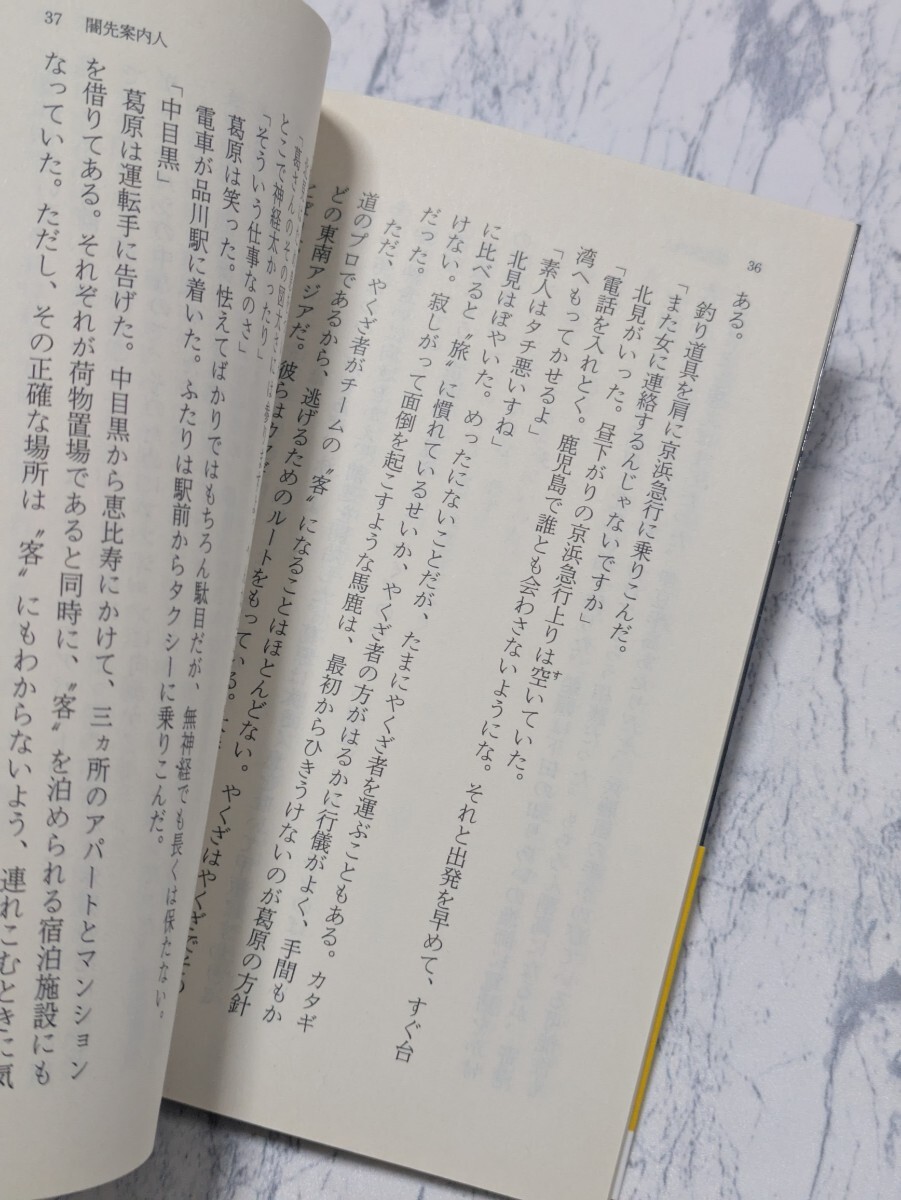 36
ある。
釣り道具を肩に京浜急行に乗りこんだ。
「また女に連絡するんじゃないですか」
北見がいった。昼下がりの京浜急行上りは空いていた。
す
「電話を入れとく。鹿児島で誰とも会わさないようにな。それと出発を早めて、すぐ台
湾へもってかせるよ」
「素人はタチ悪いすね」
北見はぼやいた。めったにないことだが、たまにやくざ者を運ぶこともある。カタギ
に比べると〝旅〟に慣れているせいか、やくざ者の方がはるかに行儀がよく、手間もか
けない。寂しがって面倒を起こすような馬鹿は、最初からひきうけないのが葛原の方針
だった。
ただ、やくざ者がチームの〝客〟になることはほとんどない。やくざはやくざで
道のプロであるから、逃げるためのルートをもっている。
どの東南アジアだ。彼らは
37 闇先案内人
「葛さんのその
とこで神経太かったり」
「そういう仕事なのさ」
葛原は笑った。怯えてばかりではもちろん駄目だが、無神経でも長くは保たない。
電車が品川駅に着いた。ふたりは駅前からタクシーに乗りこんだ。
「中目黒」
葛原は運転手に告げた。中目黒から恵比寿にかけて、三ヵ所のアパートとマンション
を借りてある。それぞれが荷物置場であると同時に、〝客〟を泊められる宿泊施設にも
なっていた。ただし、その正確な場所は〝客〟にもわからないよう、連れこむときに気